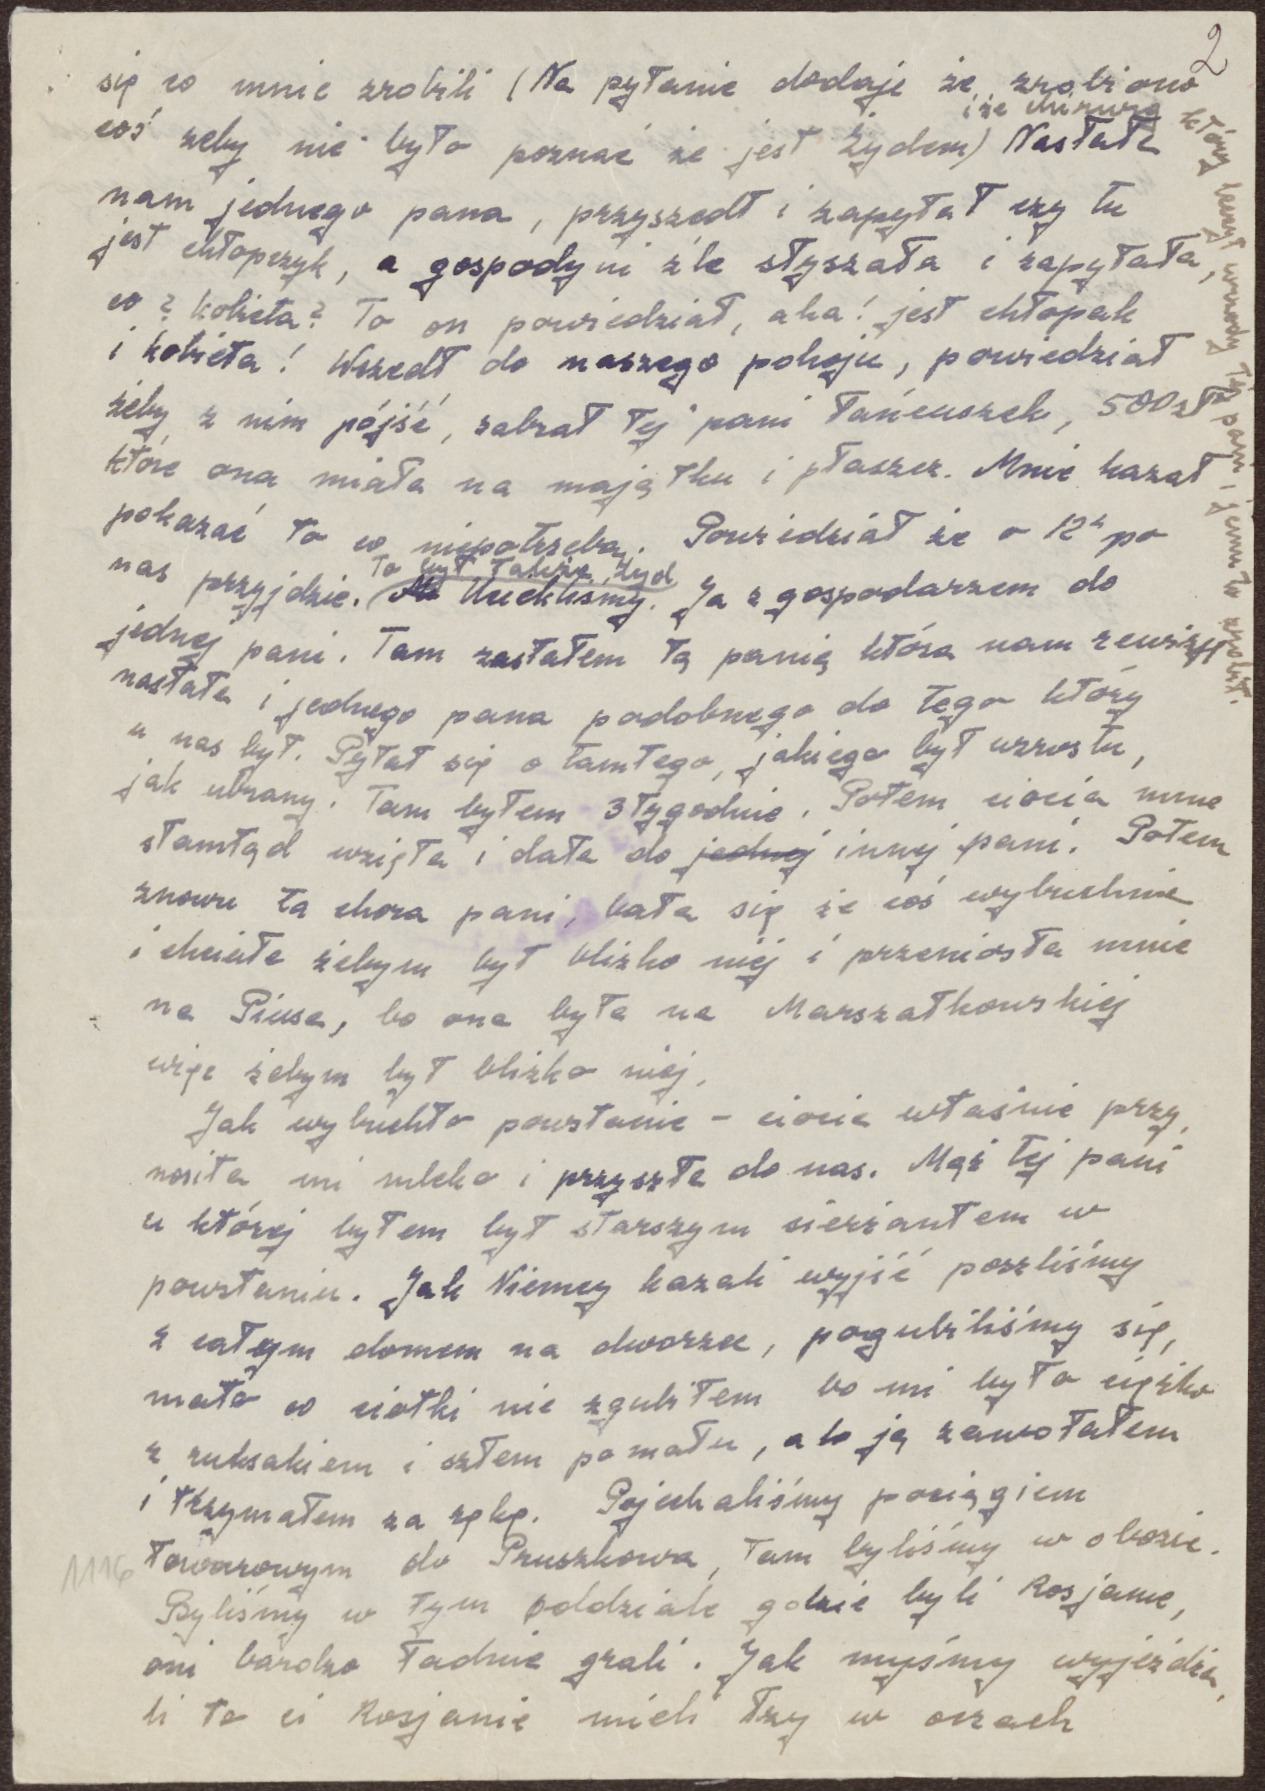 2
się co mnie zrobili (Na pytanie dodaje że zrobiono
i że chirurg
coś żeby nie było poznać że jest Żydem) Nasłała
nam jednego pana, przyszedł i zapytał czy tu
jest chłopczyk, a gospodyni źle słyszała i zapytała,
co? kobieta? To on powiedział, aha! jest chłopak
i kobieta! Wszedł do naszego pokoju, powiedział
żeby z nim pójść, zabrał tej pani łańcuszek, 500 zł
które ona miała na majątku i płaszcz. Mnie kazał
pokazać to co niepotrzeba. Powiedział że o 12h po
To był także Żyd
nas przyjdzie. Uciekliśmy. Ja z gospodarzem do
jednej pani. Tam zastałem tą panią która nam rewizję
nasłała i jednego pana podobnego do tego który
u nas był. Pytał się o tamtego, jakiego był wzrostu,
jak ubrany. Tam byłem 3 tygodnie. Potem ciocia mnie
stamtąd wzięła i dała do jednej innej pani. Potem
znowu ta chora pani, bała się że coś wybuchnie
i chciała żebym był blizko niej i przeniosła mnie
na Piusa, bo ona była na Marszałkowskiej
więc żebym był blizko niej.
Jak wybuchło powstanie – ciocia właśnie przy,
nosiła mi mleko i przyszła do nas. Mąż tej pani
u której byłem był starszym sierżantem w
powstaniu. Jak Niemcy kazali wyjść poszliśmy
z całym domem na dworzec, pogubiliśmy się,
mało co ciotki nie zgubiłem bo mi było ciężko
z ruksakiem i szłem pomału, ale ją zawołałem
i trzymałem za rękę. Pojechaliśmy pociągiem
towarowym do Pruszkowa, tam byliśmy w obozie.
1116
Byliśmy w tym oddziale gdzie byli Rosjanie,
oni bardzo ładnie grali. Jak myśmy wyjeżdża,
li to ci Rosjanie mieli łzy w oczach
który leczył wrzody tej pani i jemu to zrobił.